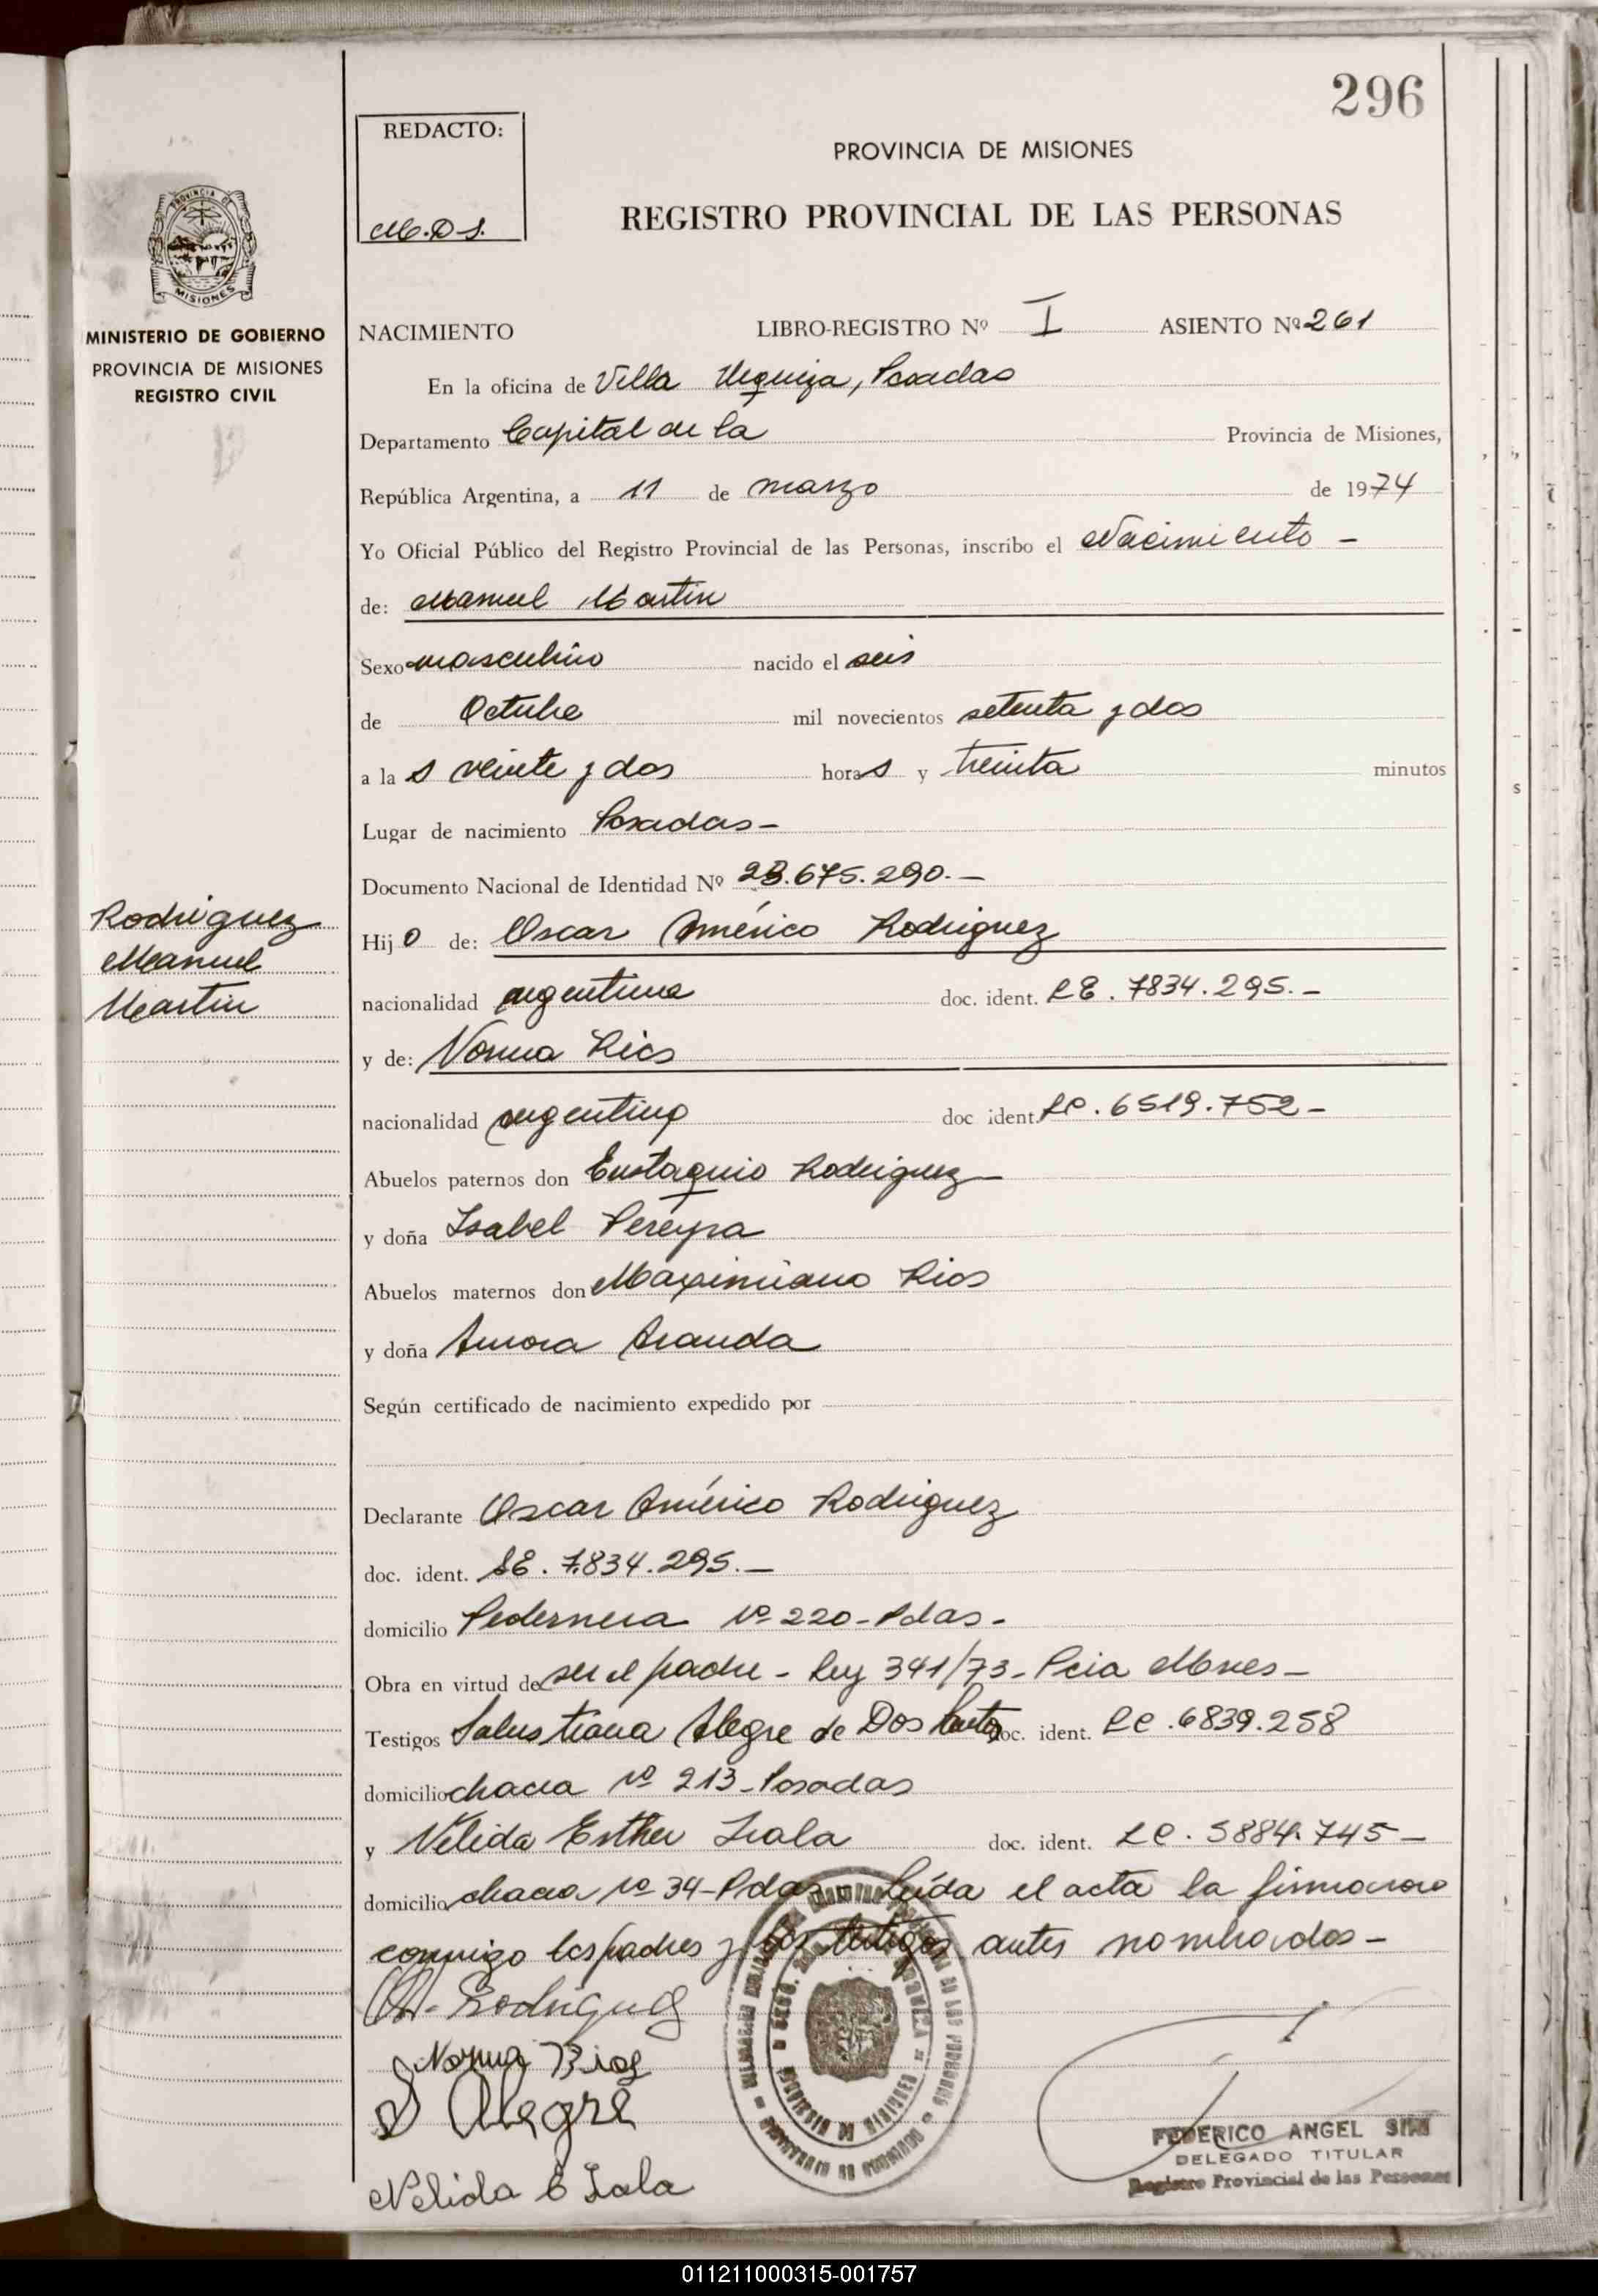 296
REDACTO:
M.D.S.
PROVINCIA DE MISIONES
REGISTRO PROVINCIAL DE LAS PERSONAS
PROVINCIA DE
MISIONES
MINISTERIO DE GOBIERNO
PROVINCIA DE MISIONES
REGISTRO CIVIL
NACIMIENTO LIBRO-REGISTRO Nº I ASIENTO Nº 261
En la oficina de Villa Urquiza, Posadas
Departamento Capital de la Provincia de Misiones,
República Argentina, a 11 de marzo de 1974
Yo Oficial Público del Registro Provincial de las Personas, inscribo el Nacimiento -
de: Manuel Martin
Sexo masculino nacido el seis
de Octubre mil novecientos setenta y dos
a la s veinte y dos hora s y treinta minutos
Lugar de nacimiento Posadas -
Documento Nacional de Identidad Nº 23.675.290. -
Rodriguez
Manuel
Martin
Hij o de: Oscar Américo Rodriguez
nacionalidad argentina doc. ident. LE. 7834.295. -
y de: Norma Rios
nacionalidad argentina doc ident. LC. 6519.752 -
Abuelos paternos don Eustaquio Rodriguez -
y doña Isabel Pereyra
Abuelos maternos don Maximiano Rios
y doña Aurora Aranda
Según certificado de nacimiento expedido por
Declarante Oscar Américo Rodriguez
doc. ident. LE. 7.834.295. -
domicilio Pedernera Nº 220 - Pdas -
Obra en virtud de ser el padre - Ley 341/73 - Pcia Mnes -
Testigos Salustiana Alegre de Dos doc. ident. LC. 6839.258
domicilio chacra Nº 213 - Posadas
y Nélida Esther Irala doc. ident. LC. 5884.745 -
domicilio chacra Nº 34 - Pdas - Leída el acta la firmaron
conmigo los padres y los testigos antes nombrados -
O.A. Rodriguez
Norma Rios
S Alegre
Nelida E Irala
FEDERICO ANGEL SIM
DELEGADO TITULAR
Registro Provincial de las Personas
011211000315-001757